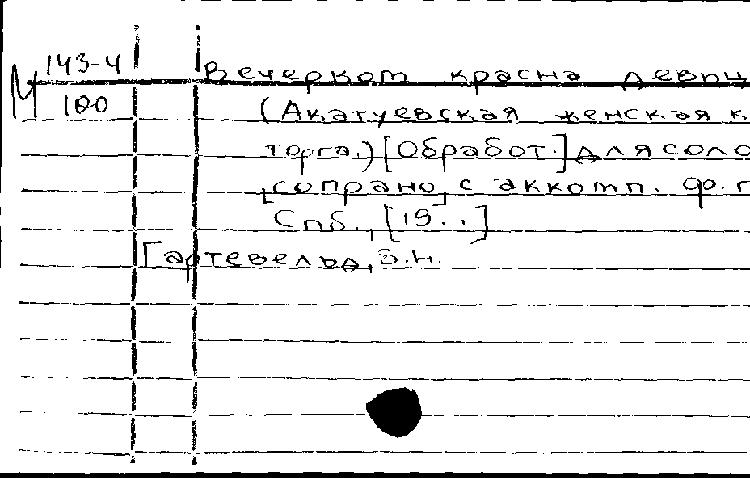 М 143-4
100
Вечерком красна девиц
(Акатуевская женская к
торга.) [Обработ.] для соло
[сопрано] с аккомп. ф.п
Спб., [19..]
Гартевельд, В.Н.